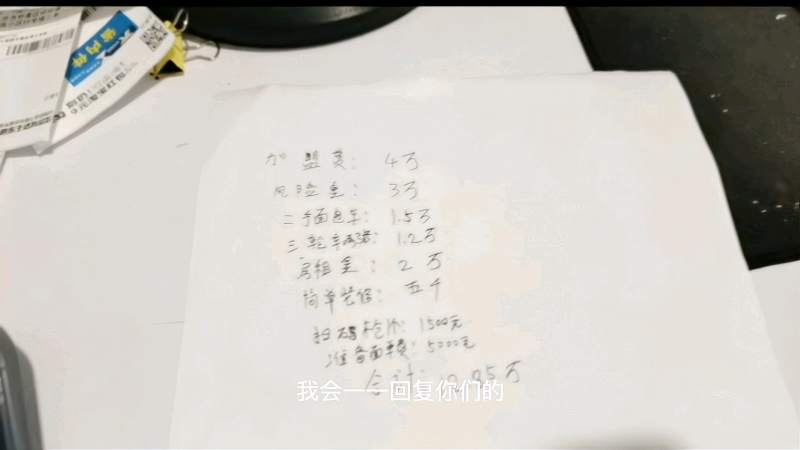 加盟费：4万
风险金：3万
二手面包车：1.5万
三轮车两辆：1.2万
房租金：2万
简单装修：五千
扫码枪：1500元
准备面单费：5000元
合计：
我会一一回复你们的